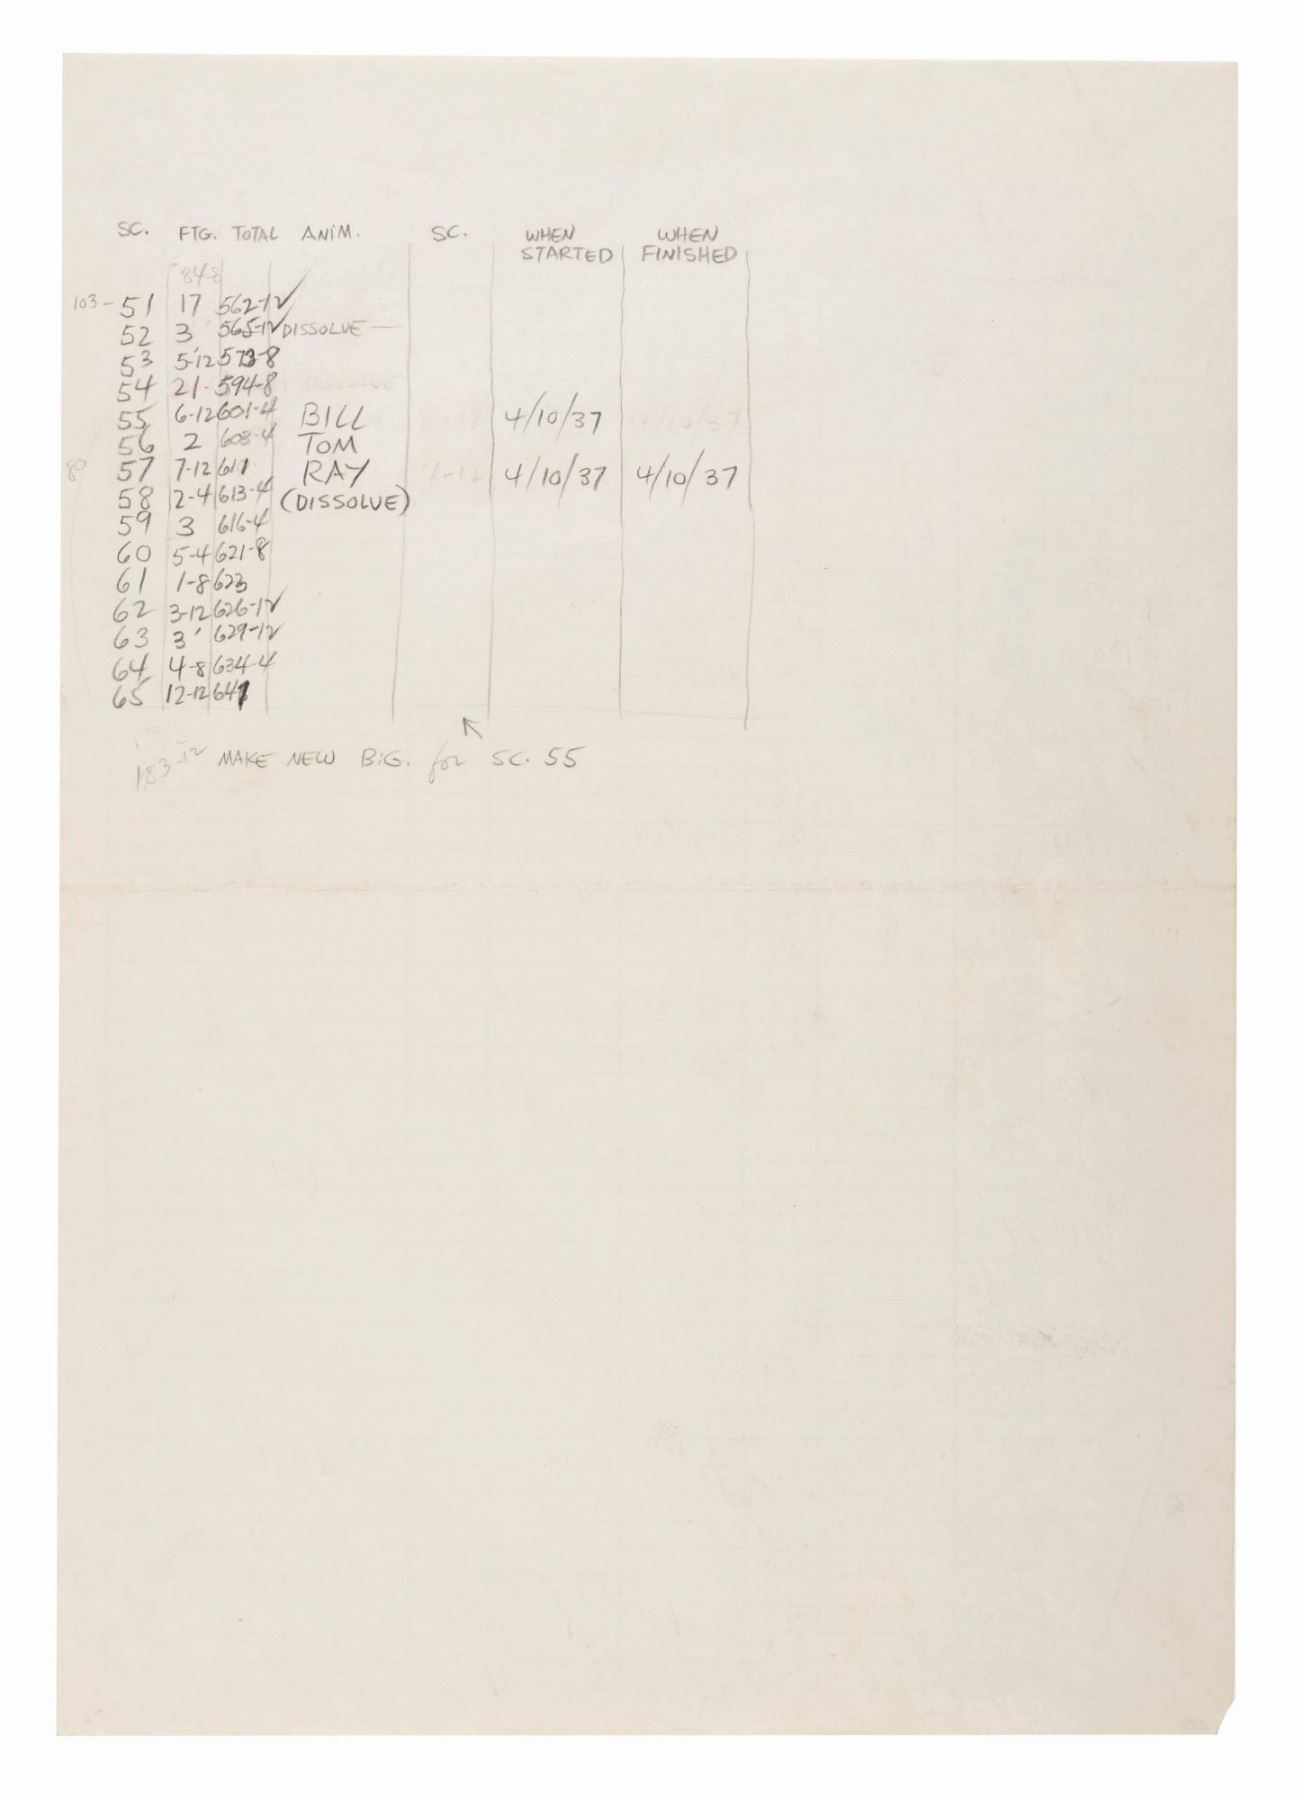 SC. FTG. TOTAL ANIM. SC. WHEN STARTED WHEN FINISHED
84-8
103- 51 17 562-12
52 3' 565-12 DISSOLVE
53 5-12 573-8
54 21- 594-8
55 6-12 601-4 BILL 4/10/37
56 2 608-4 TOM
80 57 7-12 611 RAY 4/10/37 4/10/37
58 2-4 613-4 (DISSOLVE)
59 3 616-4
60 5-4 621-8
61 1-8 623
62 3-12 626-12
63 3' 629-12
64 4-8 634-4
65 12-12
183-12 MAKE NEW for SC. 55